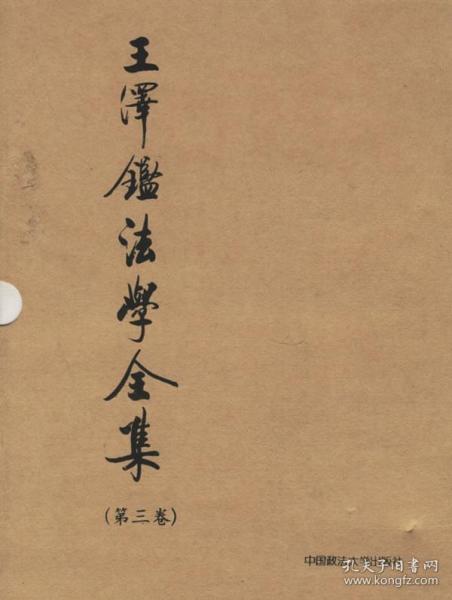 王澤鑑法學全集
(第三卷)
中国政法大学出版社
孔夫子旧书网
www.kongfz.com